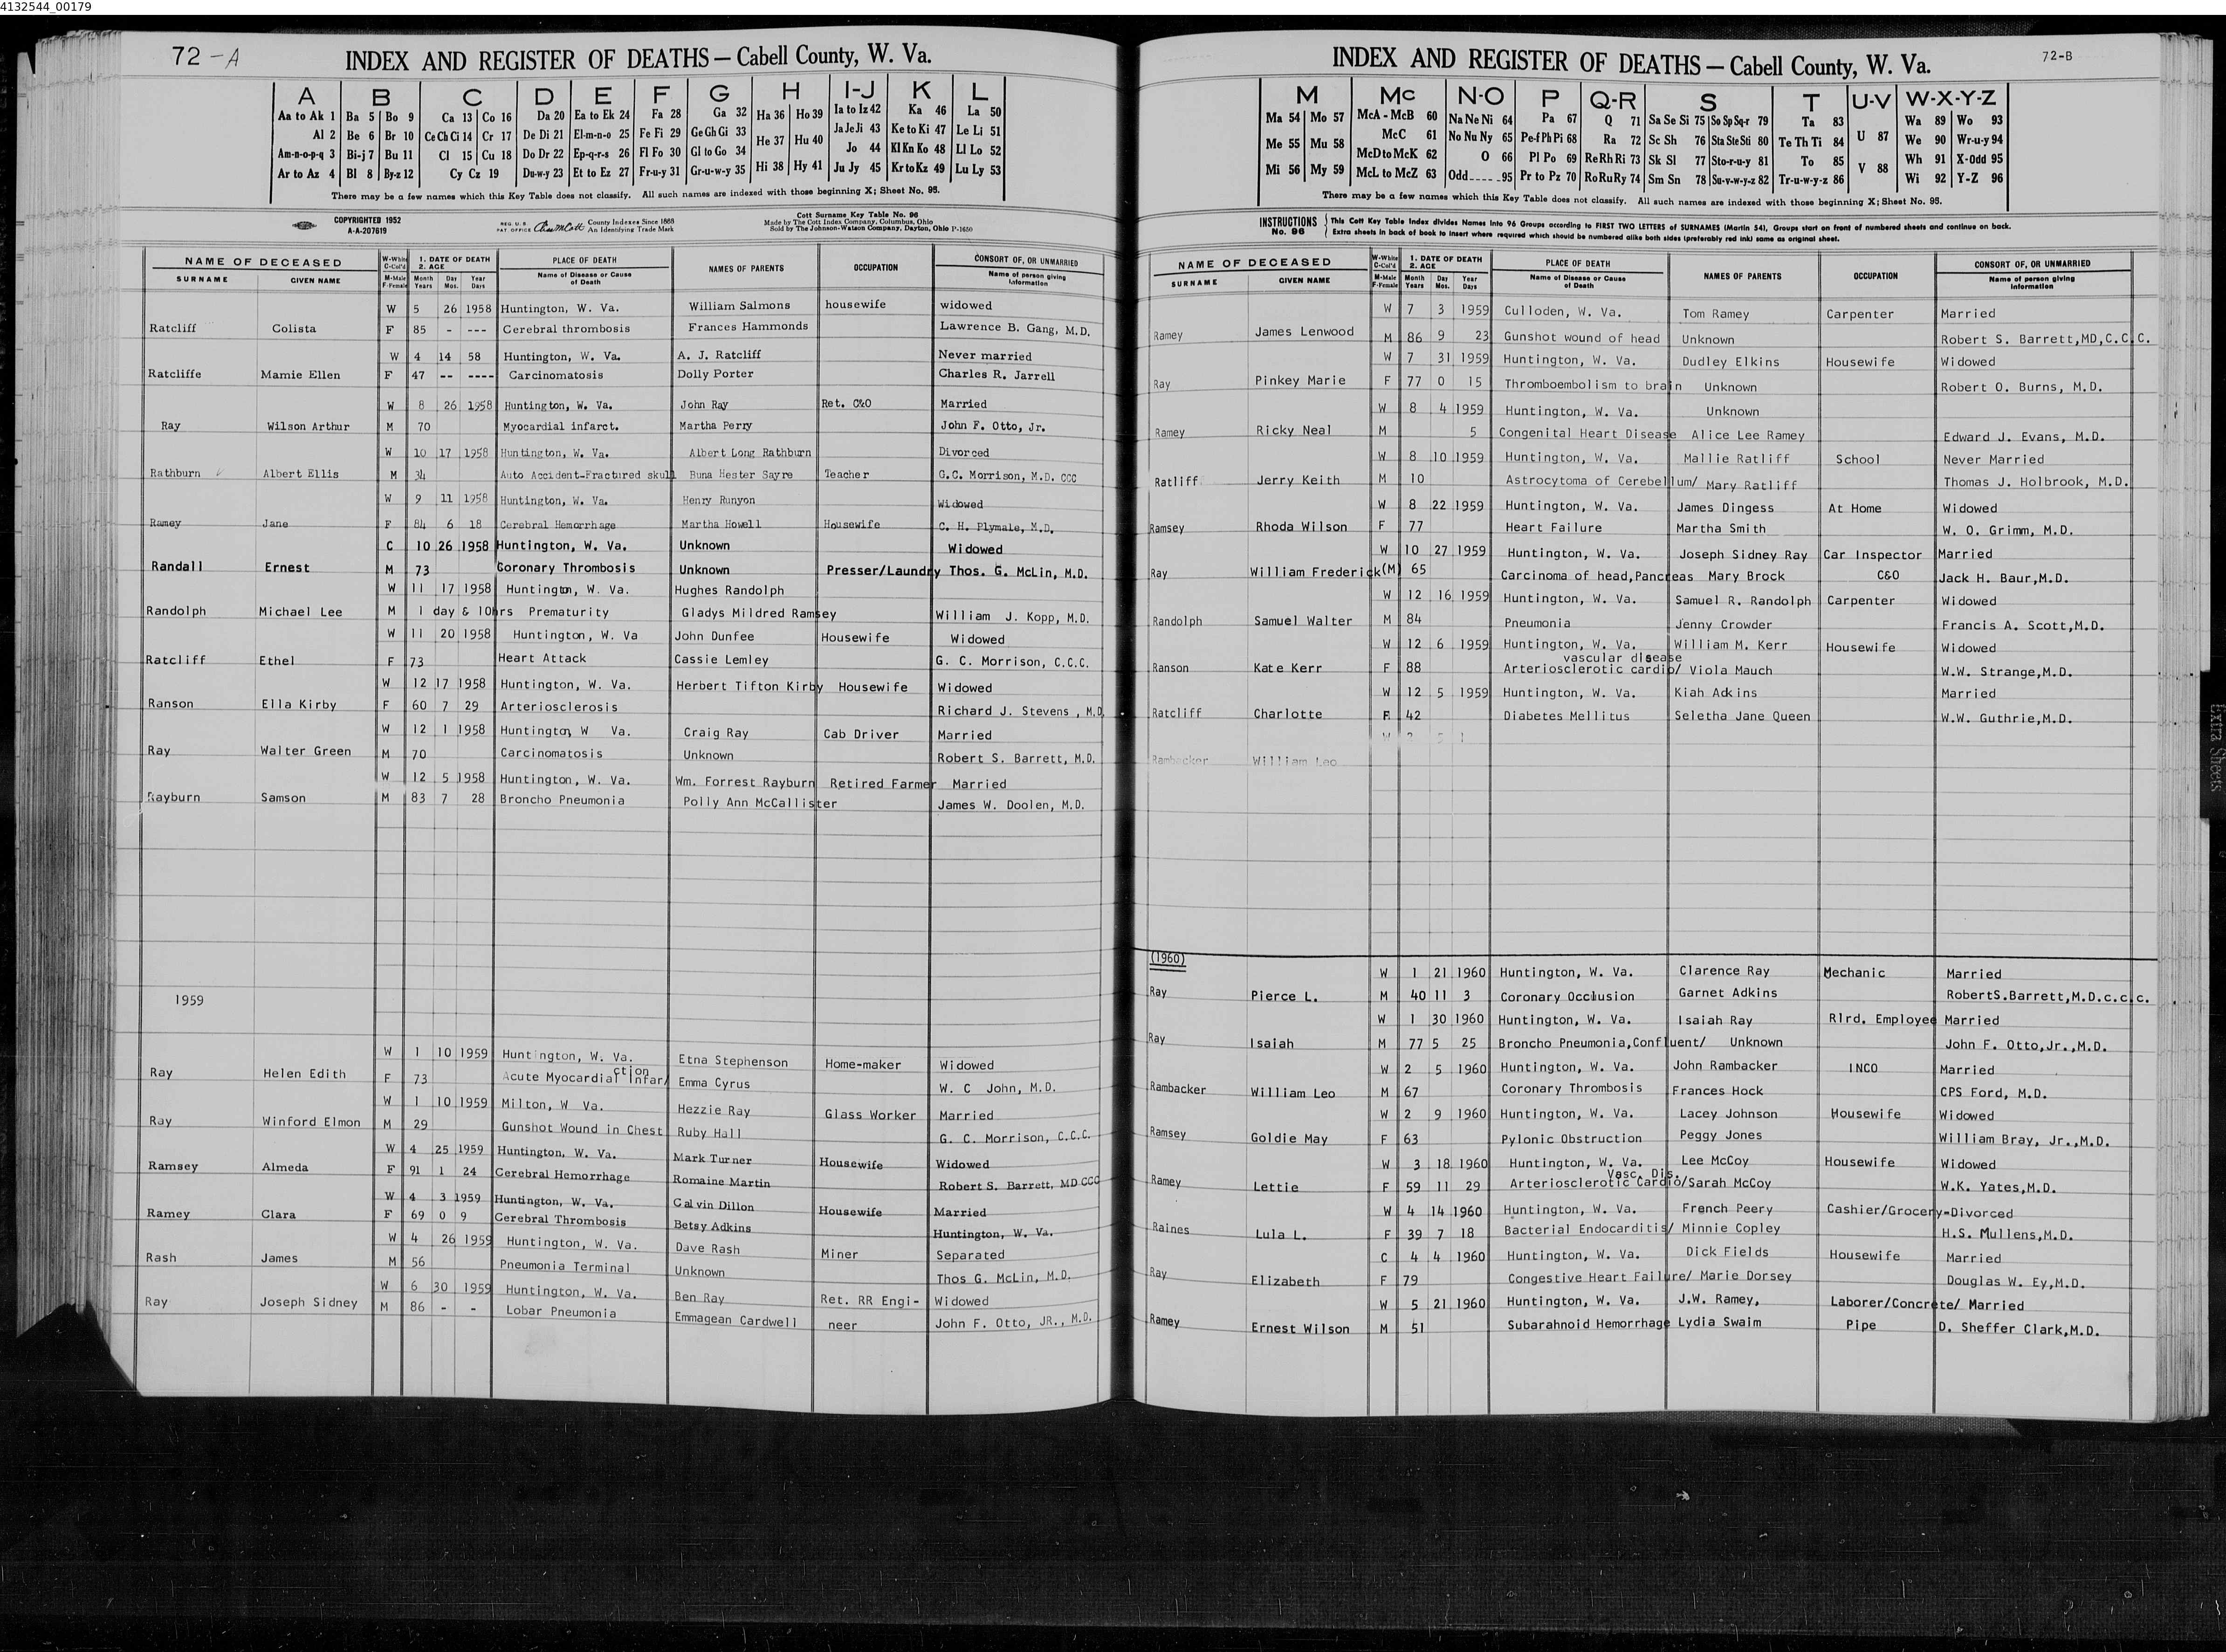 4132544_00179
72-A
INDEX AND REGISTER OF DEATHS — Cabell County, W. Va.
A B C D E F G H I-J K L
Aa to Ak 1 Ba 5 Bo 9 Ca 13 Co 16 Da 20 Ea to Ek 24 Fa 28 Ga 32 Ha 36 Ho 39 Ia to Iz 42 Ka 46 La 50
Al 2 Be 6 Br 10 Ce Ch Ci 14 Cr 17 De Di 21 El-m-n-o 25 Fe Fi 29 Ge Gh Gi 33 He 37 Hu 40 Ja Je Ji 43 Ke to Ki 47 Le Li 51
Am-n-o-p-q 3 Bi-j 7 Bu 11 Cl 15 Cu 18 Do Dr 22 Ep-q-r-s 26 Fl Fo 30 Gl to Go 34 Jo 44 Kl Kn Ko 48 Ll Lo 52
Ar to Az 4 Bl 8 By-z 12 Cy Cz 19 Du-w-y 23 Et to Ez 27 Fr-u-y 31 Gr-u-w-y 35 Hi 38 Hy 41 Ju Jy 45 Kr to Kz 49 Lu Ly 53
There may be a few names which this Key Table does not classify. All such names are indexed with those beginning X; Sheet No. 95.
COPYRIGHTED 1952
A-A-207619
REG. U.S. PAT. OFFICE County Indexes Since 1888
An Identifying Trade Mark
Cott Surname Key Table No. 96
Made by The Cott Index Company, Columbus, Ohio
Sold by The Johnson-Watson Company, Dayton, Ohio P-1650
NAME OF DECEASED
SURNAME GIVEN NAME
W-White C-Col'd M-Male F-Female
1. DATE OF DEATH 2. AGE
Month Day Year
Years Mos. Days
PLACE OF DEATH
Name of Disease or Cause of Death
NAMES OF PARENTS
OCCUPATION
CONSORT OF, OR UNMARRIED
Name of person giving Information
W 5 26 1958 Huntington, W. Va. William Salmons housewife widowed
Ratcliff Colista F 85 - --- Cerebral thrombosis Frances Hammonds Lawrence B. Gang, M.D.
W 4 14 58 Huntington, W. Va. A. J. Ratcliff Never married
Ratcliffe Mamie Ellen F 47 -- ---- Carcinomatosis Dolly Porter Charles R. Jarrell
W 8 26 1958 Huntington, W. Va. John Ray Ret. C&O Married
Ray Wilson Arthur M 70 Myocardial infarct. Martha Perry John F. Otto, Jr.
W 10 17 1958 Huntington, W. Va. Albert Long Rathburn Divorced
Rathburn Albert Ellis M 34 Auto Accident-Fractured skull Buna Hester Sayre Teacher G.C. Morrison, M.D. CCC
W 9 11 1958 Huntington, W. Va. Henry Runyon Widowed
Ramey Jane F 84 6 18 Cerebral Hemorrhage Martha Howell Housewife C. H. Plymale, M.D.
C 10 26 1958 Huntington, W. Va. Unknown Widowed
Randall Ernest M 73 Coronary Thrombosis Unknown Presser/Laundry Thos. G. McLin, M.D.
W 11 17 1958 Huntington, W. Va. Hughes Randolph
Randolph Michael Lee M 1 day & 10hrs Prematurity Gladys Mildred Ramsey William J. Kopp, M.D.
W 11 20 1958 Huntington, W. Va John Dunfee Housewife Widowed
Ratcliff Ethel F 73 Heart Attack Cassie Lemley G. C. Morrison, C.C.C.
W 12 17 1958 Huntington, W. Va. Herbert Tifton Kirby Housewife Widowed
Ranson Ella Kirby F 60 7 29 Arteriosclerosis Richard J. Stevens , M.D.
W 12 1 1958 Huntington, W Va. Craig Ray Cab Driver Married
Ray Walter Green M 70 Carcinomatosis Unknown Robert S. Barrett, M.D.
W 12 5 1958 Huntington, W. Va. Wm. Forrest Rayburn Retired Farmer Married
Rayburn Samson M 83 7 28 Broncho Pneumonia Polly Ann McCallister James W. Doolen, M.D.
1959
W 1 10 1959 Huntington, W. Va. Etna Stephenson Home-maker Widowed
Ray Helen Edith F 73 Acute Myocardial Infar/ction Emma Cyrus W. C John, M.D.
W 1 10 1959 Milton, W Va. Hezzie Ray Glass Worker Married
Ray Winford Elmon M 29 Gunshot Wound in Chest Ruby Hall G. C. Morrison, C.C.C.
W 4 25 1959 Huntington, W. Va. Mark Turner Housewife Widowed
Ramsey Almeda F 91 1 24 Cerebral Hemorrhage Romaine Martin Robert S. Barrett, MD CCC
W 4 3 1959 Huntington, W. Va. Calvin Dillon Housewife Married
Ramey Clara F 69 0 9 Cerebral Thrombosis Betsy Adkins Huntington, W. Va.
W 4 26 1959 Huntington, W. Va. Dave Rash Miner Separated
Rash James M 56 Pneumonia Terminal Unknown Thos G. McLin, M.D.
W 6 30 1959 Huntington, W. Va. Ben Ray Ret. RR Engi- Widowed
Ray Joseph Sidney M 86 - - Lobar Pneumonia Emmagean Cardwell neer John F. Otto, JR., M.D.
72-B
INDEX AND REGISTER OF DEATHS — Cabell County, W. Va.
M Mc N-O P Q-R S T U-V W-X-Y-Z
Ma 54 Mo 57 McA - McB 60 Na Ne Ni 64 Pa 67 Q 71 Sa Se Si 75 So Sp Sq-r 79 Ta 83 U 87 Wa 89 Wo 93
Me 55 Mu 58 McC 61 No Nu Ny 65 Pe-f Ph Pi 68 Ra 72 Sc Sh 76 Sta Ste Sti 80 Te Th Ti 84 We 90 Wr-u-y 94
McD to McK 62 O 66 Pl Po 69 Re Rh Ri 73 Sk Sl 77 Sto-r-u-y 81 To 85 V 88 Wh 91 X-Odd 95
Mi 56 My 59 McL to McZ 63 Odd----95 Pr to Pz 70 Ro Ru Ry 74 Sm Sn 78 Su-v-w-y-z 82 Tr-u-w-y-z 86 Wi 92 Y-Z 96
There may be a few names which this Key Table does not classify. All such names are indexed with those beginning X; Sheet No. 95.
INSTRUCTIONS No. 96
This Cott Key Table Index divides Names into 96 Groups according to FIRST TWO LETTERS of SURNAMES (Martin 54), Groups start on front of numbered sheets and continue on back.
Extra sheets in back of book to insert where required which should be numbered alike both sides (preferably red ink) same as original sheet.
NAME OF DECEASED
SURNAME GIVEN NAME
W-White C-Col'd M-Male F-Female
1. DATE OF DEATH 2. AGE
Month Day Year
Years Mos. Days
PLACE OF DEATH
Name of Disease or Cause of Death
NAMES OF PARENTS
OCCUPATION
CONSORT OF, OR UNMARRIED
Name of person giving Information
W 7 3 1959 Culloden, W. Va. Tom Ramey Carpenter Married
Ramey James Lenwood M 86 9 23 Gunshot wound of head Unknown Robert S. Barrett,MD,C.C.C.
W 7 31 1959 Huntington, W. Va. Dudley Elkins Housewife Widowed
Ray Pinkey Marie F 77 0 15 Thromboembolism to brain Unknown Robert O. Burns, M.D.
W 8 4 1959 Huntington, W. Va. Unknown
Ramey Ricky Neal M 5 Congenital Heart Disease Alice Lee Ramey Edward J. Evans, M.D.
W 8 10 1959 Huntington, W. Va. Mallie Ratliff School Never Married
Ratliff Jerry Keith M 10 Astrocytoma of Cerebellum/ Mary Ratliff Thomas J. Holbrook, M.D.
W 8 22 1959 Huntington, W. Va. James Dingess At Home Widowed
Ramsey Rhoda Wilson F 77 Heart Failure Martha Smith W. O. Grimm, M.D.
W 10 27 1959 Huntington, W. Va. Joseph Sidney Ray Car Inspector Married
Ray William Frederick (M) 65 Carcinoma of head,Pancreas Mary Brock C&O Jack H. Baur,M.D.
W 12 16 1959 Huntington, W. Va. Samuel R. Randolph Carpenter Widowed
Randolph Samuel Walter M 84 Pneumonia Jenny Crowder Francis A. Scott,M.D.
W 12 6 1959 Huntington, W. Va. William M. Kerr Housewife Widowed
vascular disease
Ranson Kate Kerr F 88 Arteriosclerotic cardio/ Viola Mauch W.W. Strange,M.D.
W 12 5 1959 Huntington, W. Va. Kiah Adkins Married
Ratcliff Charlotte F 42 Diabetes Mellitus Seletha Jane Queen W.W. Guthrie,M.D.
W 2 5 1
Rambacker William Leo
(1960)
W 1 21 1960 Huntington, W. Va. Clarence Ray Mechanic Married
Ray Pierce L. M 40 11 3 Coronary Occlusion Garnet Adkins RobertS.Barrett,M.D.c.c.c.
W 1 30 1960 Huntington, W. Va. Isaiah Ray Rlrd. Employee Married
Ray Isaiah M 77 5 25 Broncho Pneumonia,Confluent/ Unknown John F. Otto,Jr.,M.D.
W 2 5 1960 Huntington, W. Va. John Rambacker INCO Married
Rambacker William Leo M 67 Coronary Thrombosis Frances Hock CPS Ford, M.D.
W 2 9 1960 Huntington, W. Va. Lacey Johnson Housewife Widowed
Ramsey Goldie May F 63 Pylonic Obstruction Peggy Jones William Bray, Jr.,M.D.
W 3 18 1960 Huntington, W. Va. Lee McCoy Housewife Widowed
Vasc. Dis.
Ramey Lettie F 59 11 29 Arteriosclerotic Cardio/Sarah McCoy W.K. Yates,M.D.
W 4 14 1960 Huntington, W. Va. French Peery Cashier/Grocery-Divorced
Raines Lula L. F 39 7 18 Bacterial Endocarditis/ Minnie Copley H.S. Mullens,M.D.
C 4 4 1960 Huntington, W. Va. Dick Fields Housewife Married
Ray Elizabeth F 79 Congestive Heart Failure/ Marie Dorsey Douglas W. Ey,M.D.
W 5 21 1960 Huntington, W. Va. J.W. Ramey, Laborer/Concrete/ Married
Ramey Ernest Wilson M 51 Subarahnoid Hemorrhage Lydia Swaim Pipe D. Sheffer Clark,M.D.
Extra Sheets